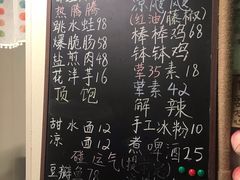 热腾腾
跳水蛙98
爆脆肠58
盐煎肉48
花洋芋16
顶饱
甜水面12
凉面12
豆瓣鱼78
凉飕飕
(红油/藤椒)
棒棒鸡68
钵钵鸡
荤35素18
荤素42
解辣
手工冰粉10
煮啤酒25